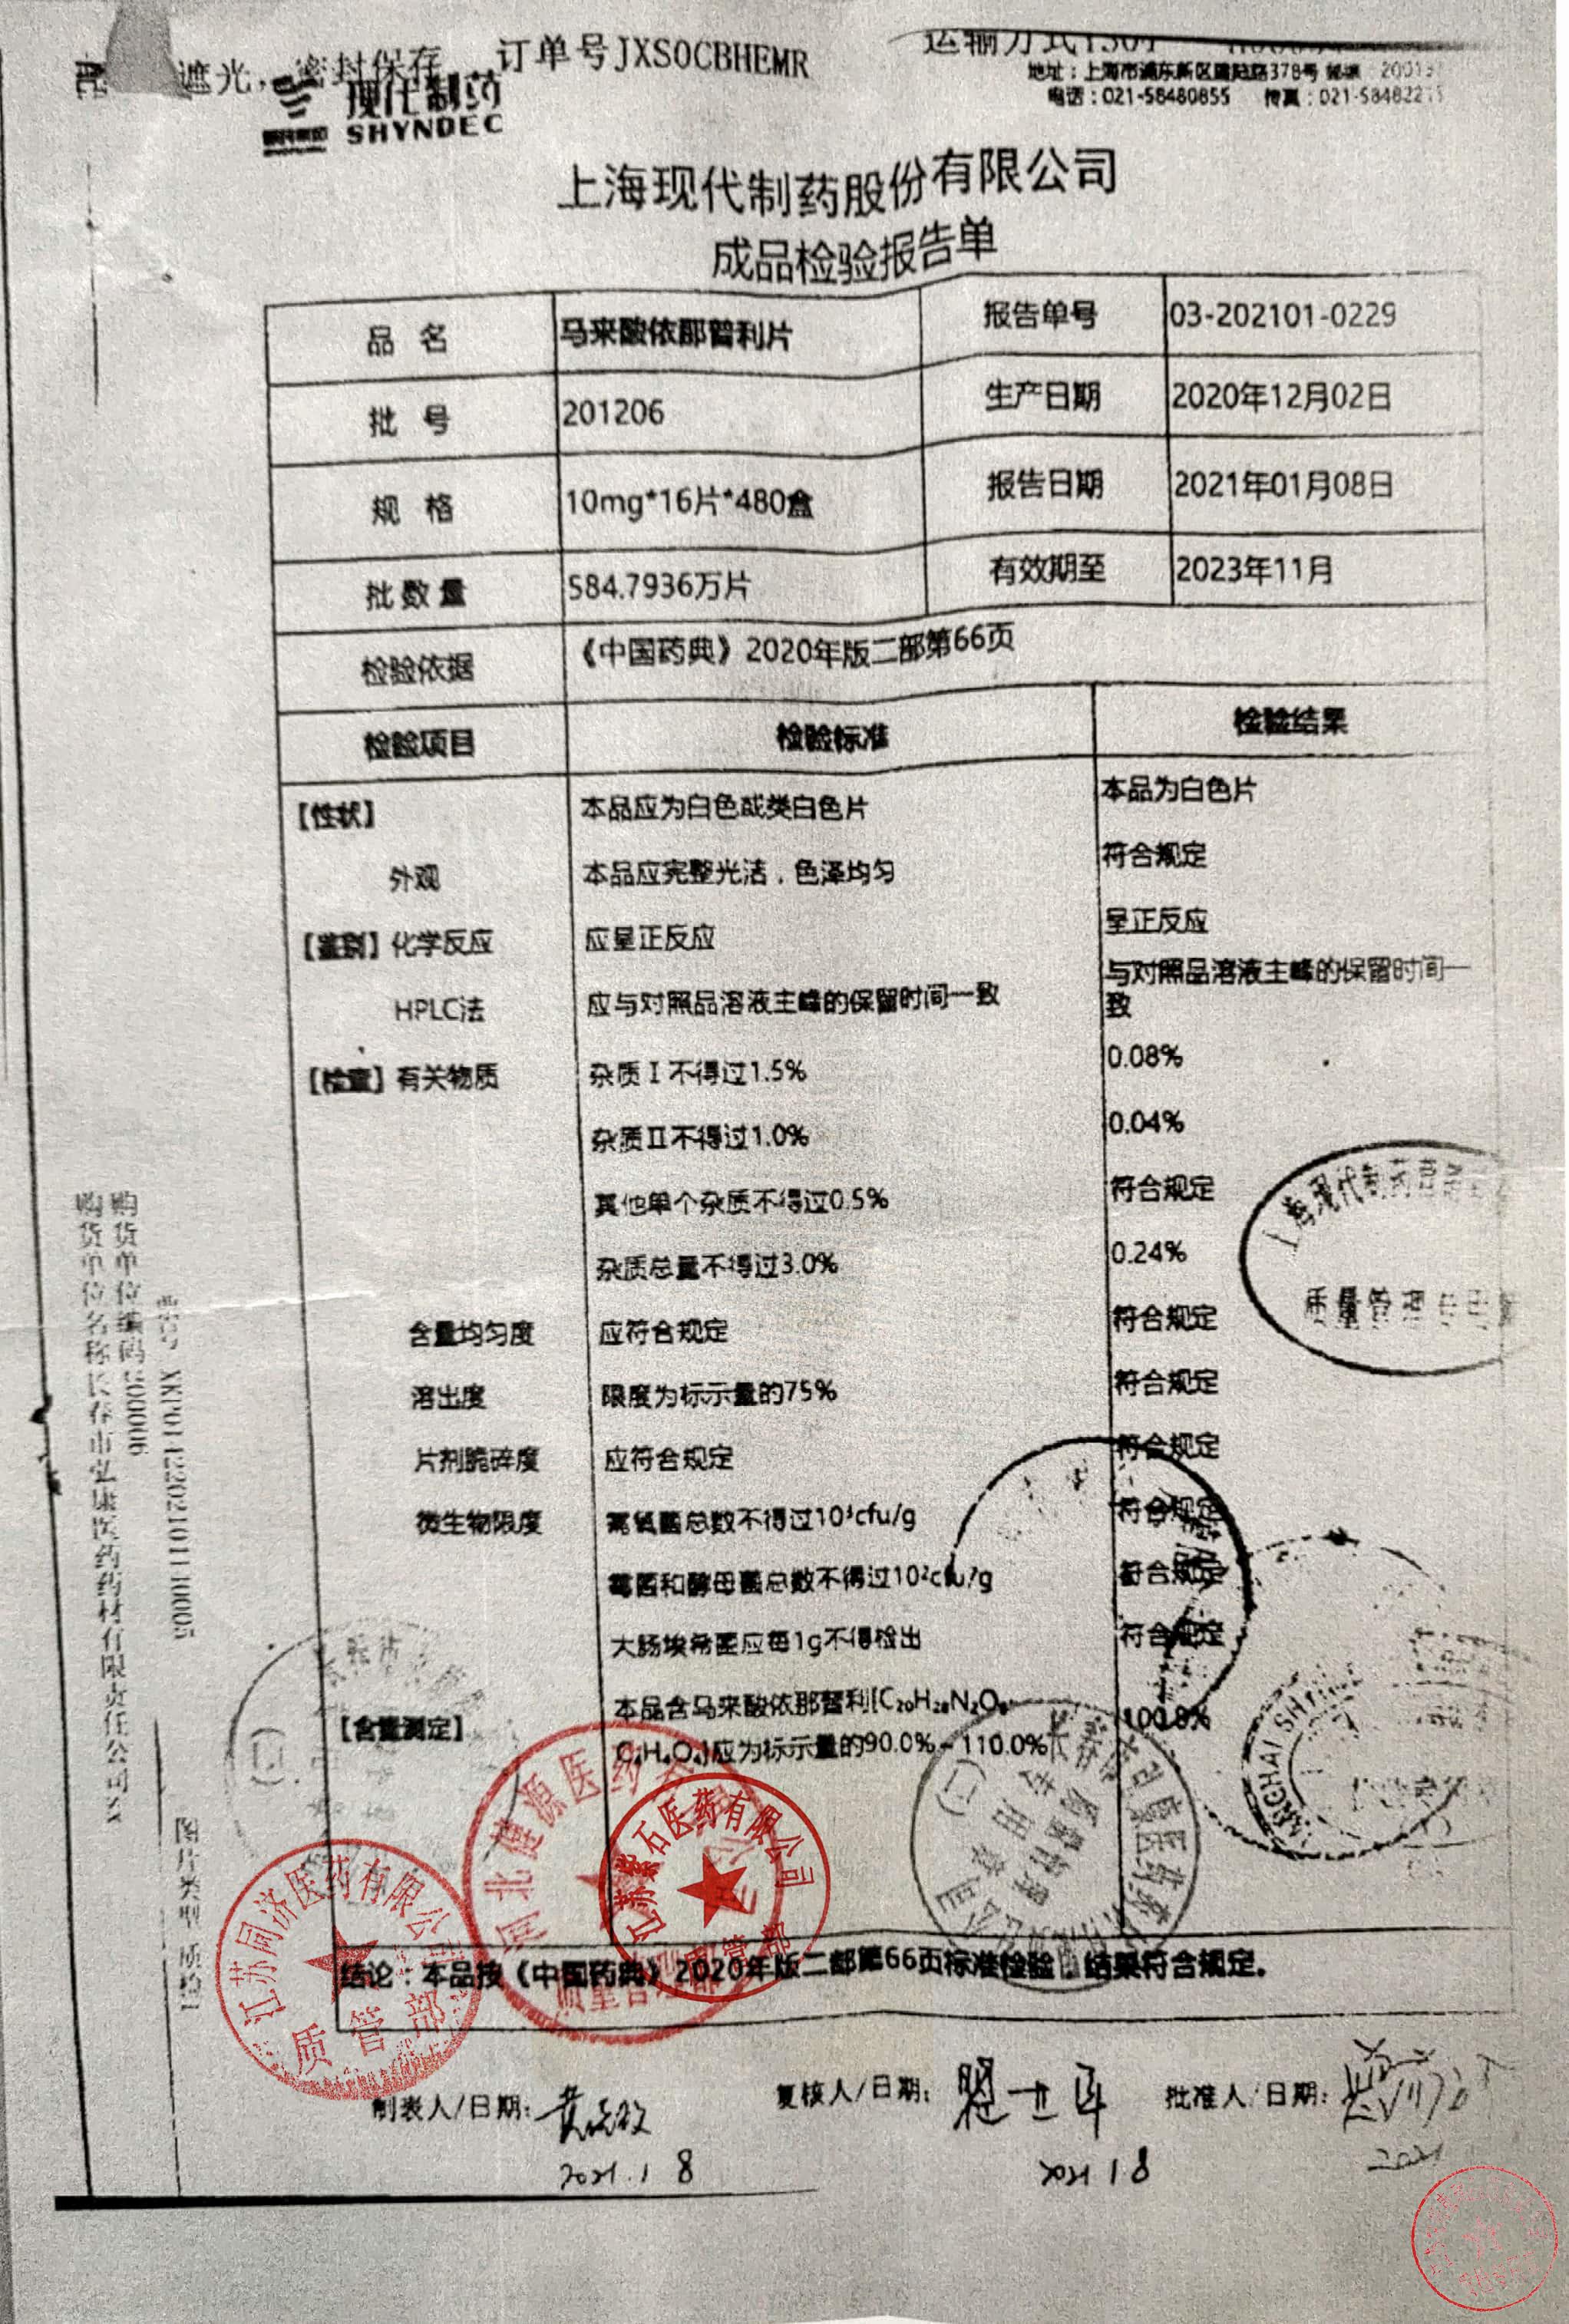 遮光，密封保存 订单号JXSOCBHEMR
现代制药
SHYNDEC
地址：上海市浦东新区建陆路378号
电话：021-58480855 传真：021-584822
上海现代制药股份有限公司
成品检验报告单
品 名 马来酸依那普利片 报告单号 03-202101-0229
批 号 201206 生产日期 2020年12月02日
规 格 10mg*16片*480盒 报告日期 2021年01月08日
批数量 584.7936万片 有效期至 2023年11月
检验依据 《中国药典》2020年版二部第66页
检验项目 检验标准 检验结果
【性状】 本品应为白色或类白色片 本品为白色片
外观 本品应完整光洁，色泽均匀 符合规定
【鉴别】化学反应 应呈正反应 呈正反应
HPLC法 应与对照品溶液主峰的保留时间一致 与对照品溶液主峰的保留时间一
致
【检查】有关物质 杂质Ⅰ不得过1.5% 0.08%
杂质Ⅱ不得过1.0% 0.04%
其他单个杂质不得过0.5% 符合规定
杂质总量不得过3.0% 0.24%
含量均匀度 应符合规定 符合规定
溶出度 限度为标示量的75% 符合规定
片剂脆碎度 应符合规定 符合规定
微生物限度 需氧菌总数不得过10³cfu/g 符合规定
霉菌和酵母菌总数不得过10²cfu/g 符合规定
大肠埃希菌应每1g不得检出 符合规定
【含量测定】 本品含马来酸依那普利(C₂₀H₂₈N₂O₅·
C₄H₄O₄)应为标示量的90.0%~110.0% 100.8%
结论：本品按《中国药典》2020年版二部第66页标准检验，结果符合规定。
制表人/日期： 2021.1 8
复核人/日期： 2021 1 8
批准人/日期： 2021
购货单位编码
购货单位名称长春市弘康医药药材有限责任公司
图片类型 质检
上海现代制药营销
质量管理专用
江苏同济医药有限公司
质管部
河北健源医药有限公司
质量管理部
江苏紫石医药有限公司
质管部